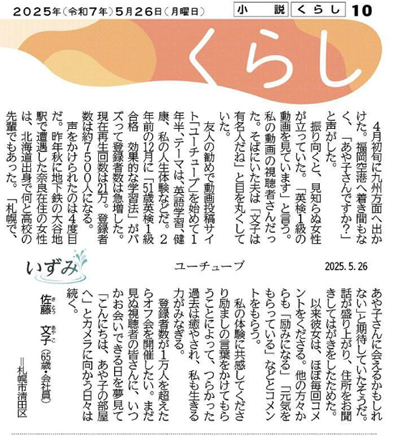 2025年(令和7年)5月26日(月曜日)
小　説
くらし
10
くらし
いずみ
ユーチューブ
2025.5.26
４月初旬に九州方面へ出か
けた。福岡空港へ着き間もな
く、「あや子さんですか？」
と声がした。
振り向くと、見知らぬ女性
が立っていた。「英検１級の
動画を見ています」と言う。
私の動画の視聴者さんだっ
た。そばにいた夫は「文子は
有名人だね」と目を丸くして
いた。
友人の勧めで動画投稿サイ
ト「ユーチューブ」を始めて１
年半。テーマは、英語学習、健
康、私の人生体験などだ。２
年前の12月に「51歳英検１級
合格　効果的な学習法」がバ
ズって登録者数は急増した。
現在再生回数は21万、登録者
数は約７５００人になる。
声をかけられたのは４度目
だ。昨年秋に地下鉄の大谷地
駅で遭遇した奈良在住の女性
は、北海道出身で何と高校の
先輩でもあった。「札幌で、
あや子さんに会えるかもしれ
ない」と期待していたそうだ。
話が盛り上がり、住所をお聞
きしてはがきをしたためた。
以来彼女は、ほぼ毎回コメ
ントをくださる。他の方々か
らも「励みになる」「元気を
もらっている」などとコメン
トをもらう。
私の体験に共感してくださ
り励ましの言葉をかけてもら
うことによって、つらかった
過去は癒やされ、私も生きる
力がみなぎる。
登録者数が１万人を超えた
らオフ会を開催したい。まだ
見ぬ視聴者の皆さんに、いつ
かお会いできる日を夢見て
「こんにちは、あや子の部屋
へ」とカメラに向かう日々は
続く。
佐藤　文子(65歳・会社員)
＝札幌市清田区